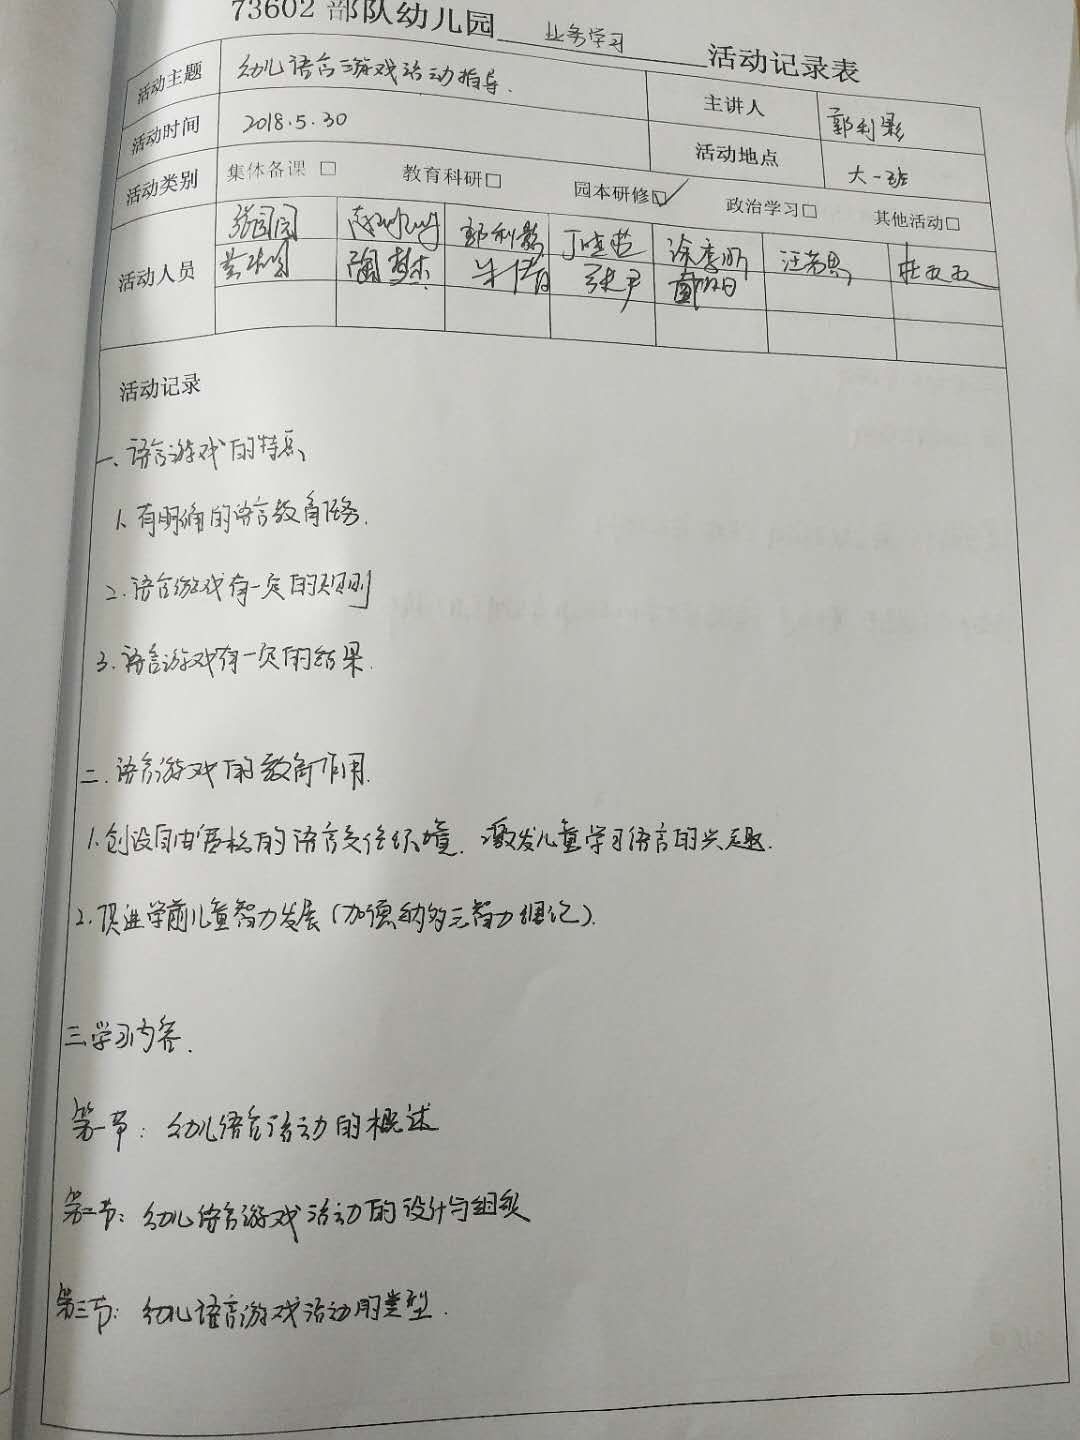 73602 部队幼儿园 业务学习 活动记录表
活动主题 幼儿语言游戏活动指导. 主讲人 郭利影
活动时间 2018.5.30 活动地点 大一班
活动类别 集体备课□ 教育科研□ 园本研修☑ 政治学习□ 其他活动□
活动人员 张园园 郭利影
活动记录
一、语言游戏的特点
1、有明确的语言教育任务.
2.语言游戏有一定的规则
3.语言游戏有一定的结果.
二.语言游戏的教育作用.
1.创设自由宽松的语言交往环境.激发儿童学习语言的兴趣.
2.促进学前儿童智力发展(加德纳的多元智力理论).
三学习内容.
第一节：幼儿语言活动的概述
第二节：幼儿语言游戏活动的设计与组织
第三节：幼儿语言游戏活动的类型.